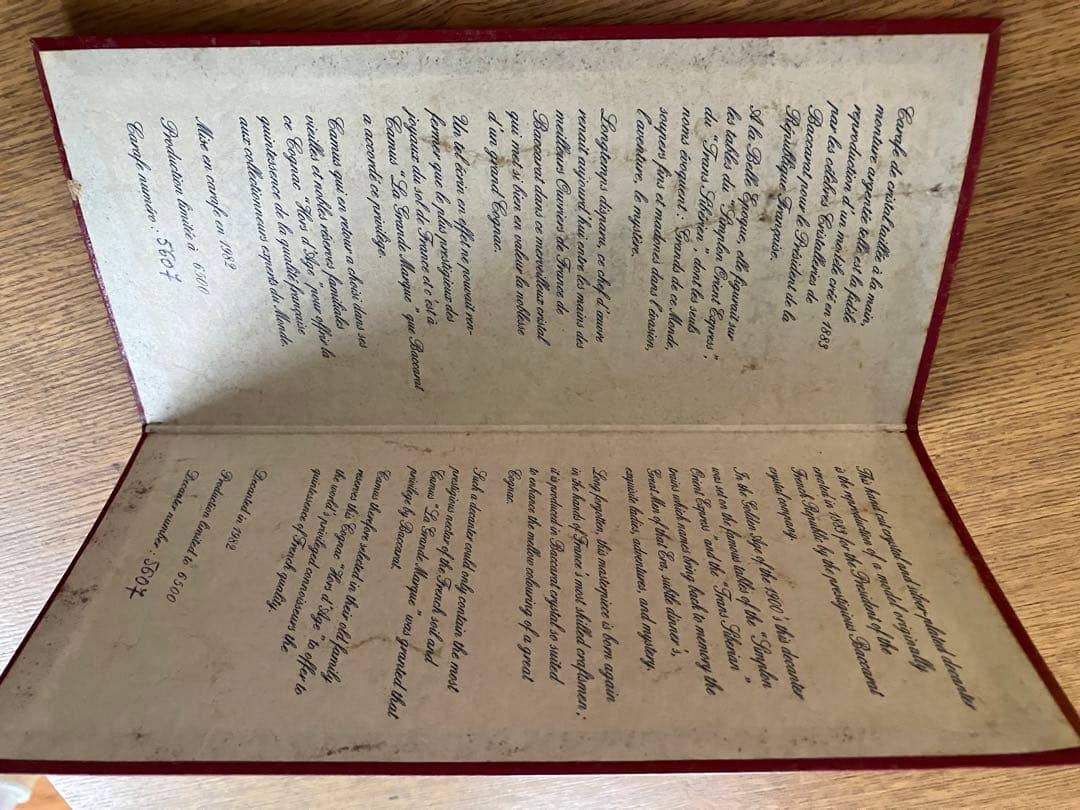 Carafe de cristal taillée à la main,
monture argentée telle est la fidèle
reproduction d'un modèle créé en 1883
par les célèbres Cristalleries de
Baccarat pour le Président de la
République Française.
A la Belle Epoque, elle figurait sur
les tables du "Simplon Orient Express",
du "Trans Sibérien", dont les seuls
noms évoquent : Grands de ce Monde,
soupers fins et mondaines dans l'évasion,
l'aventure, le mystère.
Longtemps disparu, ce chef d'œuvre
renait aujourd'hui entre les mains des
meilleurs Ouvriers de France de
Baccarat dans ce merveilleux cristal
qui met si bien en valeur la noblesse
d'un grand Cognac.
Un tel écrin en effet ne pouvait ren-
fermer que le plus prestigieux des
joyaux du sol de France et c'est à
Camus "La Grande Marque" que Baccarat
a accordé ce privilège.
Camus qui en retour a choisi dans ses
vieilles et nobles réserves familiales
ce Cognac "Hors d'Age" pour offrir la
quintessence de la qualité française
aux collectionneurs experts du Monde.
Mise en carafe en 1982
Production limitée à 6500
Carafe numéro : 5607
This hand cut crystal and silver plated decanter
is the reproduction of a model originally
made in 1883 for the President of the
French Republic by the prestigious Baccarat
crystal company.
In the Golden Age of the 1900's this decanter
was set on the famous tables of the "Simplon
Orient Express" and the "Trans Siberian"
trains which names bring back to memory the
Great Men of that Era, subtle dinner's,
exquisite ladies, adventures, and mystery.
Long forgotten, this masterpiece is born again
in the hands of France's most skilled craftsmen,
it is produced in Baccarat crystal so suited
to enhance the mellow colouring of a great
Cognac.
Such a decanter could only contain the most
prestigious nectar of the French soil and
Camus "La Grande Marque" was granted that
privilege by Baccarat.
Camus therefore selected in their old family
reserves this Cognac "Hors d'Age" to offer to
the world's privileged connoisseurs the
quintessence of French quality.
Decanted in 1982
Production limited to 6500
Decanter number : 5607